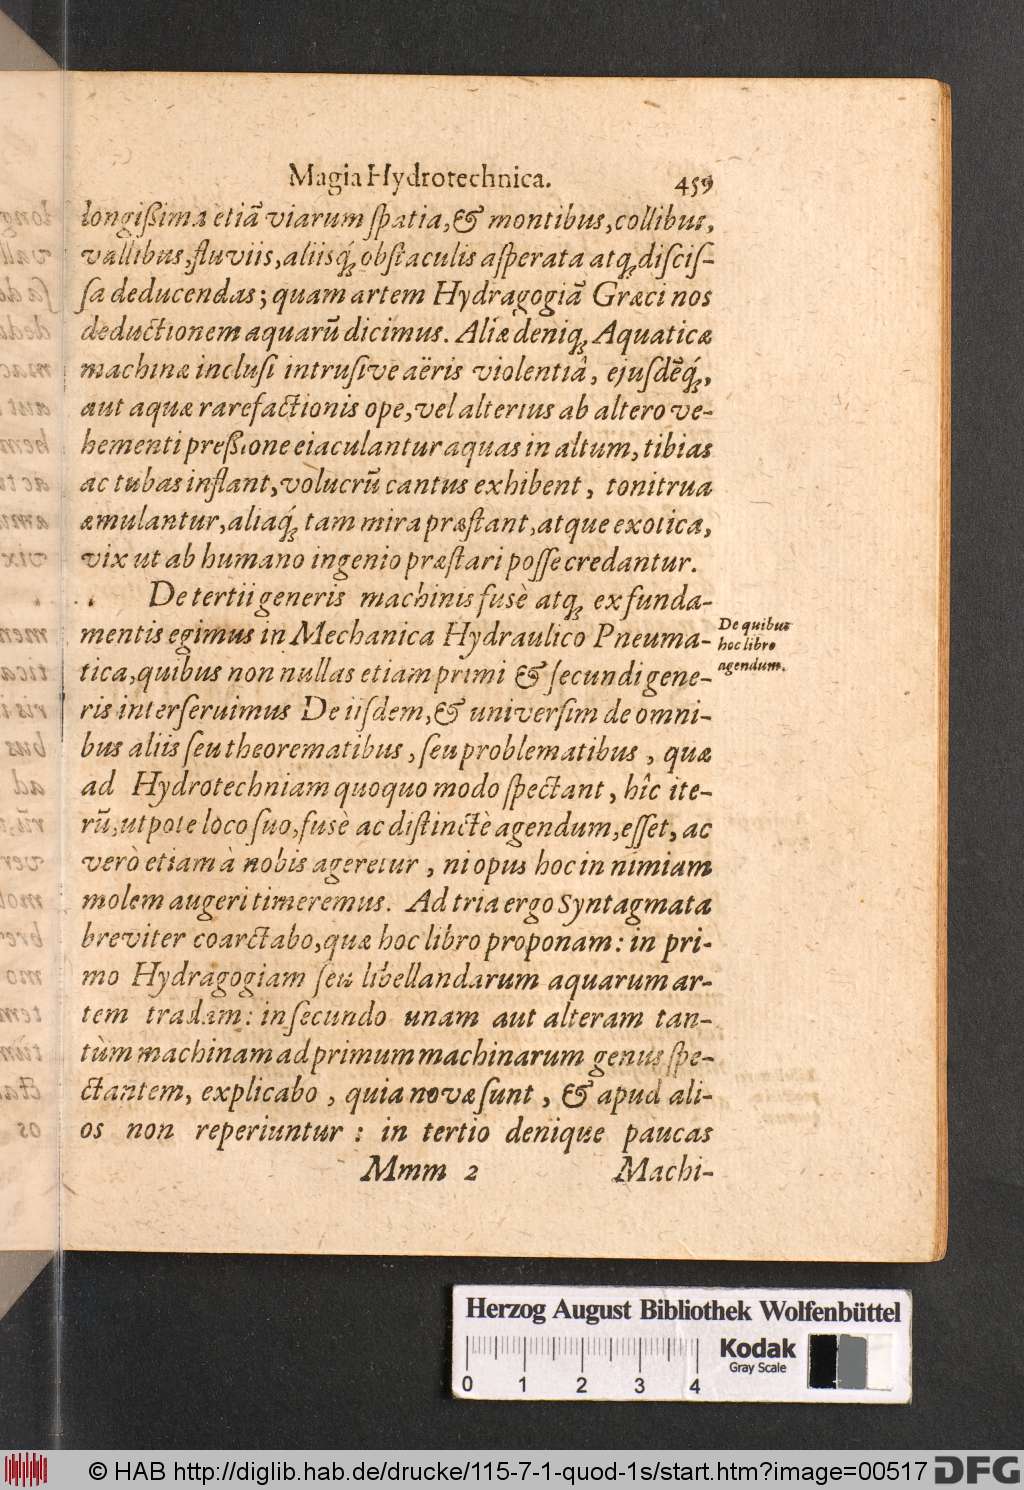 Magia Hydrotechnica. 459
longißima etiã viarum ſpatia, & montibus, collibus,
vallibus, fluviis, aliisq́; obſtaculis aſperata atq; diſciſ-
ſa deducendas; quam artem Hydragogiã Græci nos
deductionem aquarũ dicimus. Aliæ deniq; Aquaticæ
machinæ incluſi intruſive aëris violentiâ, ejuſdẽq́;,
aut aquæ rarefactionis ope, vel alterius ab altero ve-
hementi preßione eiaculantur aquas in altum, tibias
ac tubas inflant, volucrũ cantus exhibent, tonitrua
æmulantur, aliaq́; tam mira præſtant, atque exotica,
vix ut ab humano ingenio præſtari poſſe credantur.
De tertii generis machinis fusè atq; ex funda-
mentis egimus in Mechanica Hydraulico Pneuma-
tica, quibus non nullas etiam primi & ſecundi gene-
ris interſeruimus De iiſdem, & univerſim de omni-
bus aliis ſeu theorematibus, ſeu problematibus, quæ
ad Hydrotechniam quoquo modo ſpectant, hîc ite-
rũ, utpote loco ſuo, fusè ac diſtinctè agendum, eſſet, ac
verò etiam à nobis ageretur, ni opus hoc in nimiam
molem augeri timeremus. Ad tria ergo Syntagmata
breviter coarctabo, quæ hoc libro proponam: in pri-
mo Hydragogiam ſeu libellandarum aquarum ar-
tem tradam: in ſecundo unam aut alteram tan-
tùm machinam ad primum machinarum genus ſpe-
ctantem, explicabo, quia novæ ſunt, & apud ali-
os non reperiuntur: in tertio denique paucas
Mmm 2 Machi-
De quibus
hoc libro
agendum.
Herzog August Bibliothek Wolfenbüttel
0 1 2 3 4
Kodak
Gray Scale
© HAB http://diglib.hab.de/drucke/115-7-1-quod-1s/start.htm?image=00517 DFG